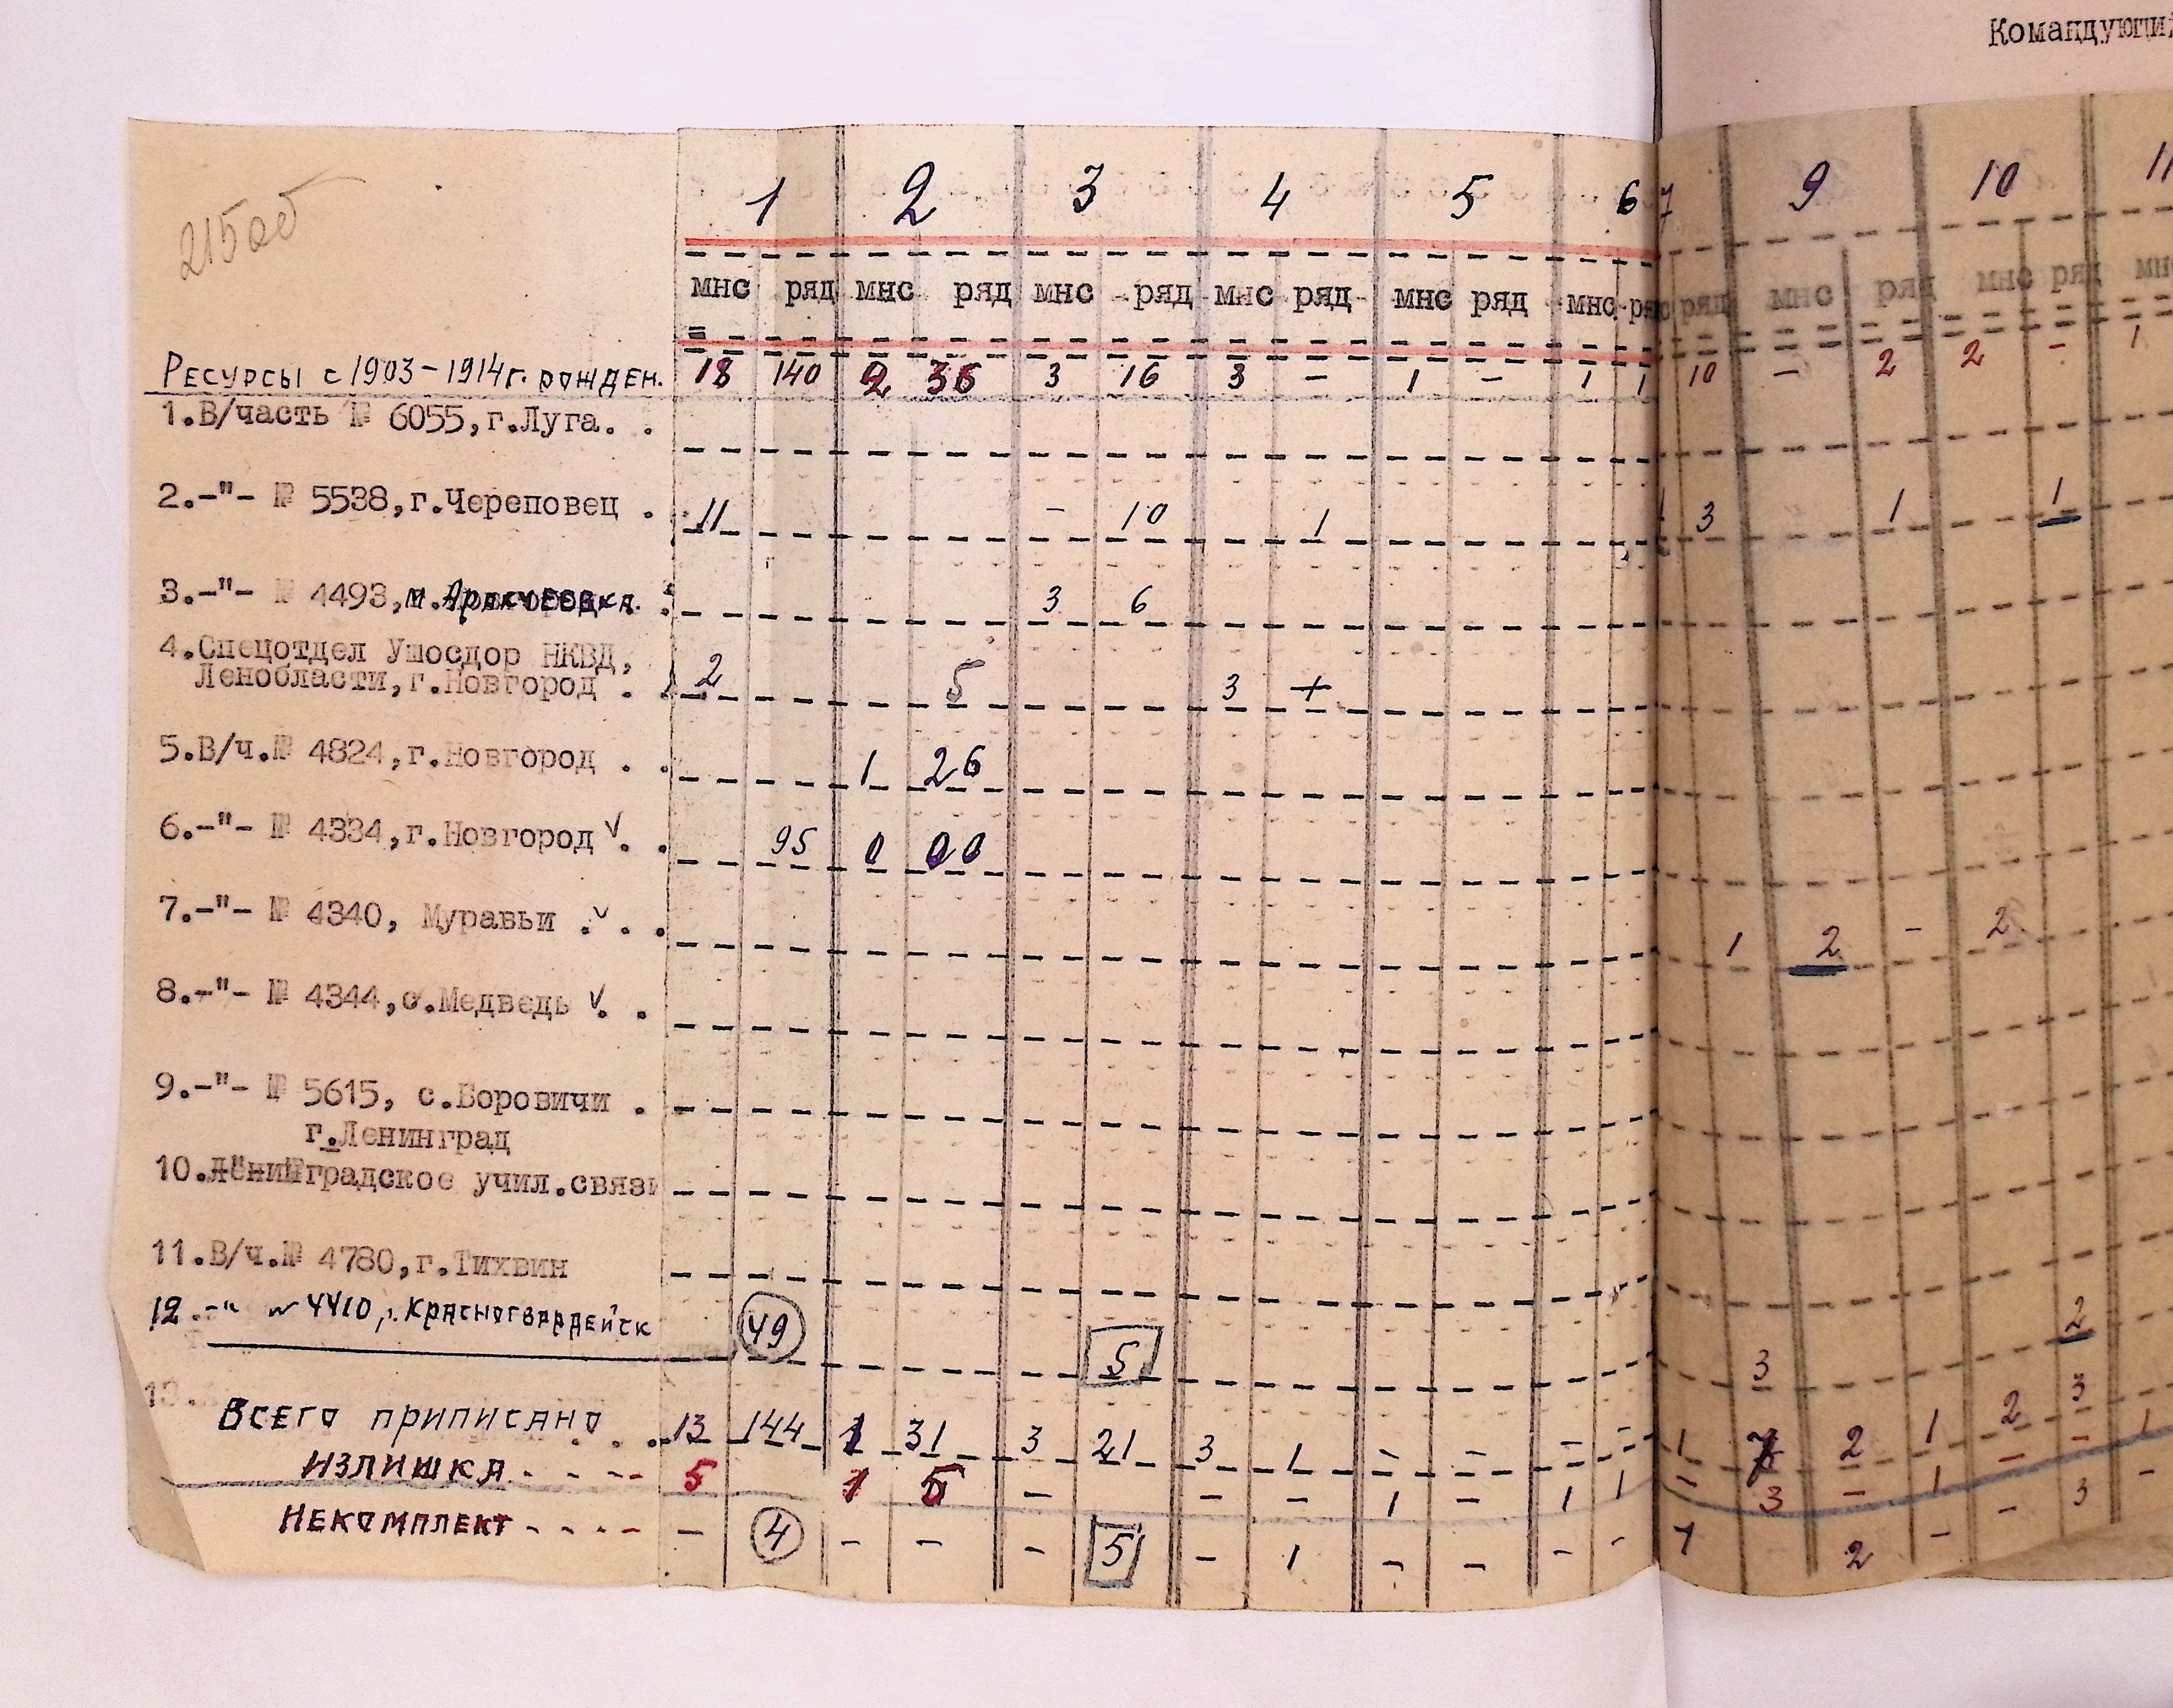 Командующи
215об
1 2 3 4 5 6 7 9 10 11
мнс ряд мнс ряд мнс ряд мнс ряд мнс ряд мнс ряд мнс ряд мнс ряд
Ресурсы с 1903-1914г. рожден. 18 140 2 36 3 16 3 - 1 - 1 1 10 - 2 2 - 1
1.В/часть № 6055,г.Луга. .
2.-"- № 5538,г.Череповец . 11 - 10 1 3 1 1
3.-"- № 4493,м.Аракчеевка. 3 6
4.Спецотдел Ушосдор НКВД,
Ленобласти,г.Новгород . 2 5 3 +
5.В/ч.№ 4824,г.Новгород . . 1 26
6.-"- № 4334,г.Новгород ✓. . 95 0 00
7.-"- № 4340, Муравьи .✓. . 1 2 - 2
8.-"- № 4344,с.Медведь ✓. .
9.-"- № 5615, с.Боровичи .
г.Ленинград
10.Ленинградское учил.связи
11.В/ч.№ 4780,г.Тихвин
12.-"- № 4410, г. Красногвардейск 49 5 3 2
13.
Всего приписано 13 144 1 31 3 21 3 1 - - - - 1 7 2 1 2 3
Излишка - - - - 5 1 5 - - - 1 - 1 1 - 3 - 1 - - 1
Некомплект - - - - - 4 - - - 5 - 1 - - - - 1 2 - - 3 -